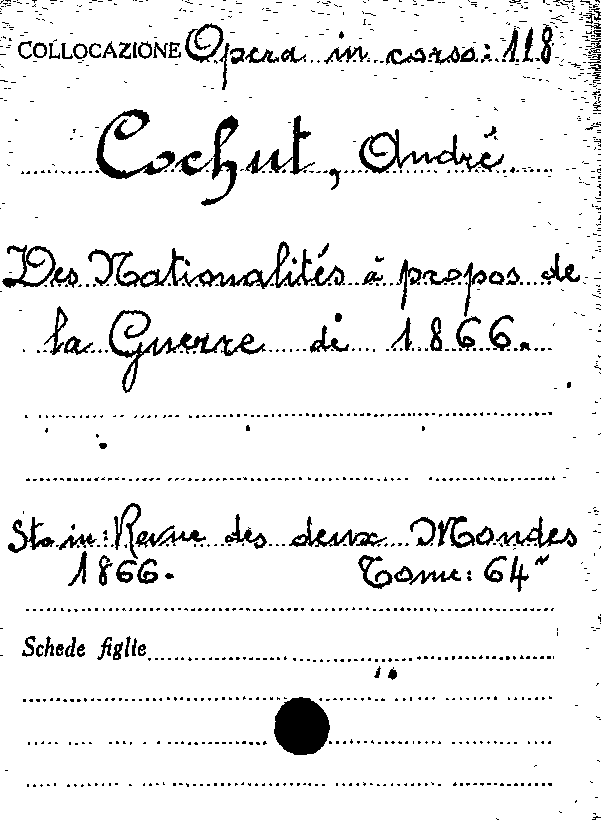 COLLOCAZIONE Opera in corso: 118
Cochut, André.
Des Nationalités à propos de
la Guerre de 1866.
Sta in: Revue des deux Mondes
1866. Tome: 64"
Schede figlie